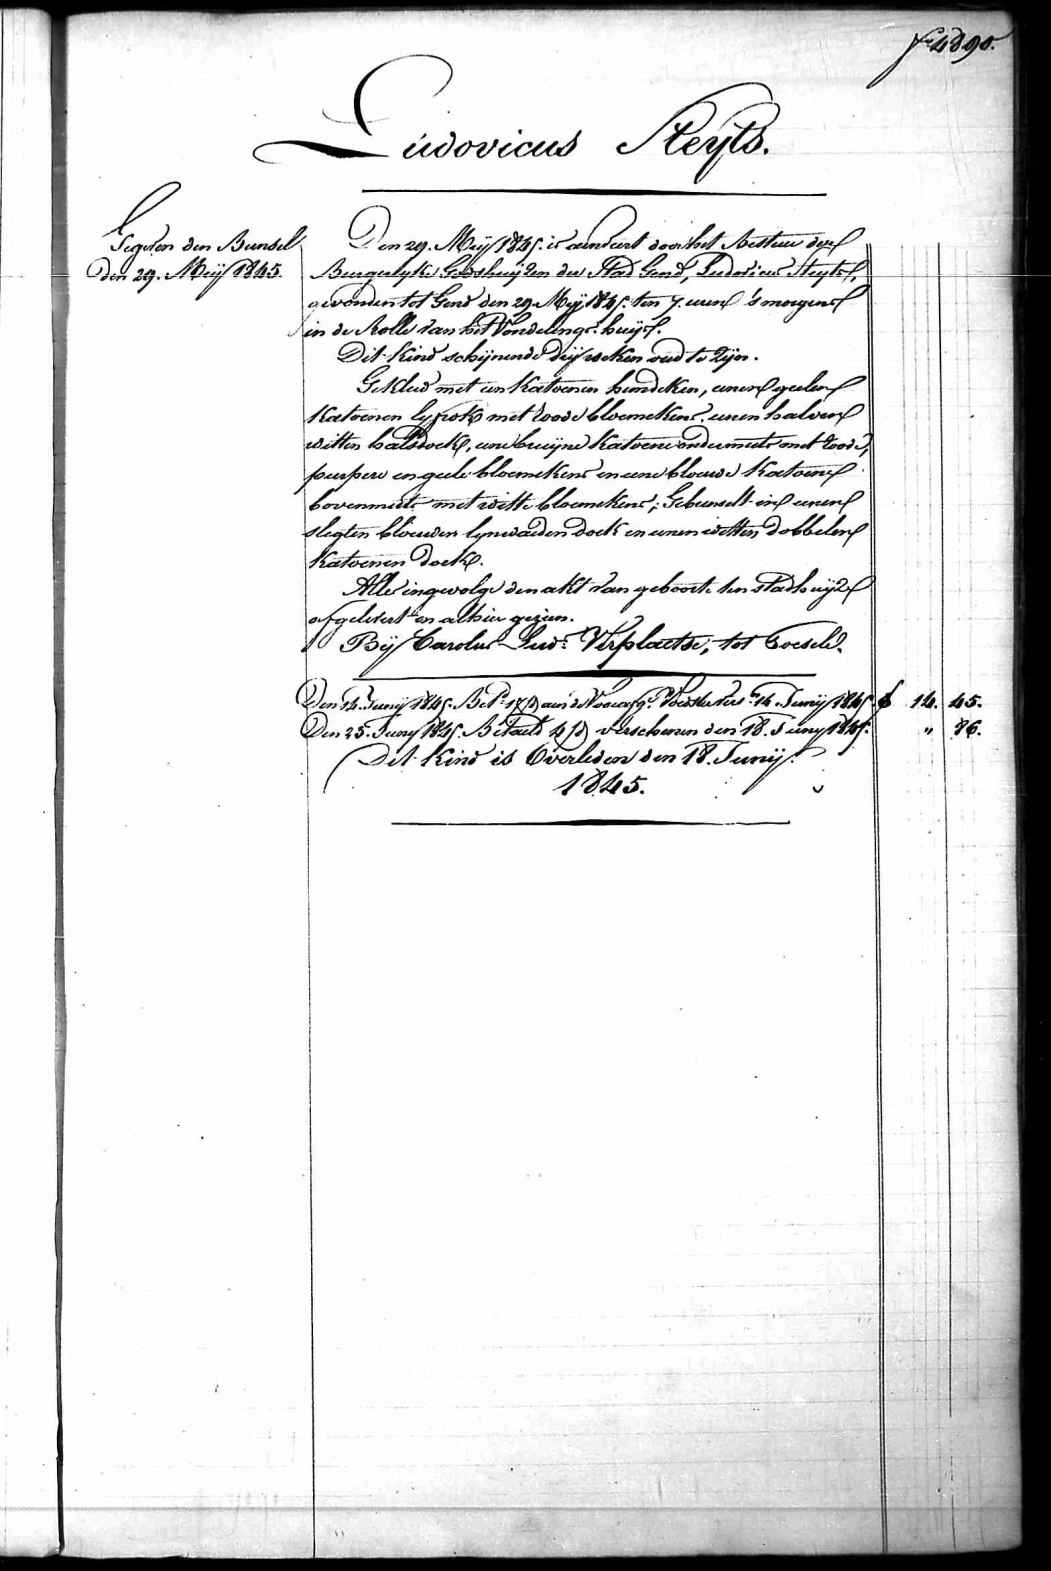 4890.
Ludovicus Steyts.
Gegeven den Bunsel
den 29. Meÿ 1845.
Den 29. Meÿ 1845. is aenveirt door het bestuer der
Burgerlyke Godshuÿzen der Stad Gend, Ludovicus Steyts,
gevonden tot Gend den 29 Meÿ 1845. ten 7. uren 's morgens
in de Rolle van het Vondelings-huÿs.
Dit kind schijnende drÿ weken oud te zÿn.
Gekleed met een katoenen hemdeken, eenen geelen
katoenen lyfrok met roode bloemekens, eenen halven
witten halsdoek, eene bruÿne katoene ondermuts met roode,
purpere en geele bloemekens en eene blouwe katoene
bovenmuts met witte bloemekens; Gebunselt in eenen
slegten blouwen lynwaeden doek en eenen witten dobbelen
katoenen doek.
Alles ingevolge den akt van geboorte ten stadhuÿze
afgelevert en alhier gezien.
Bÿ Carolus Lud: Verplaetse, tot Soesele.
Den 14. Junÿ 1845. Bet. 17 aen de 14. Junÿ 1845. f 14. 45.
Den 25. Juny 1845. Betaeld 4 verschenen den 18. Juny 1845. " 76.
Dit kind is Overleden den 18. Junÿ.
1845.